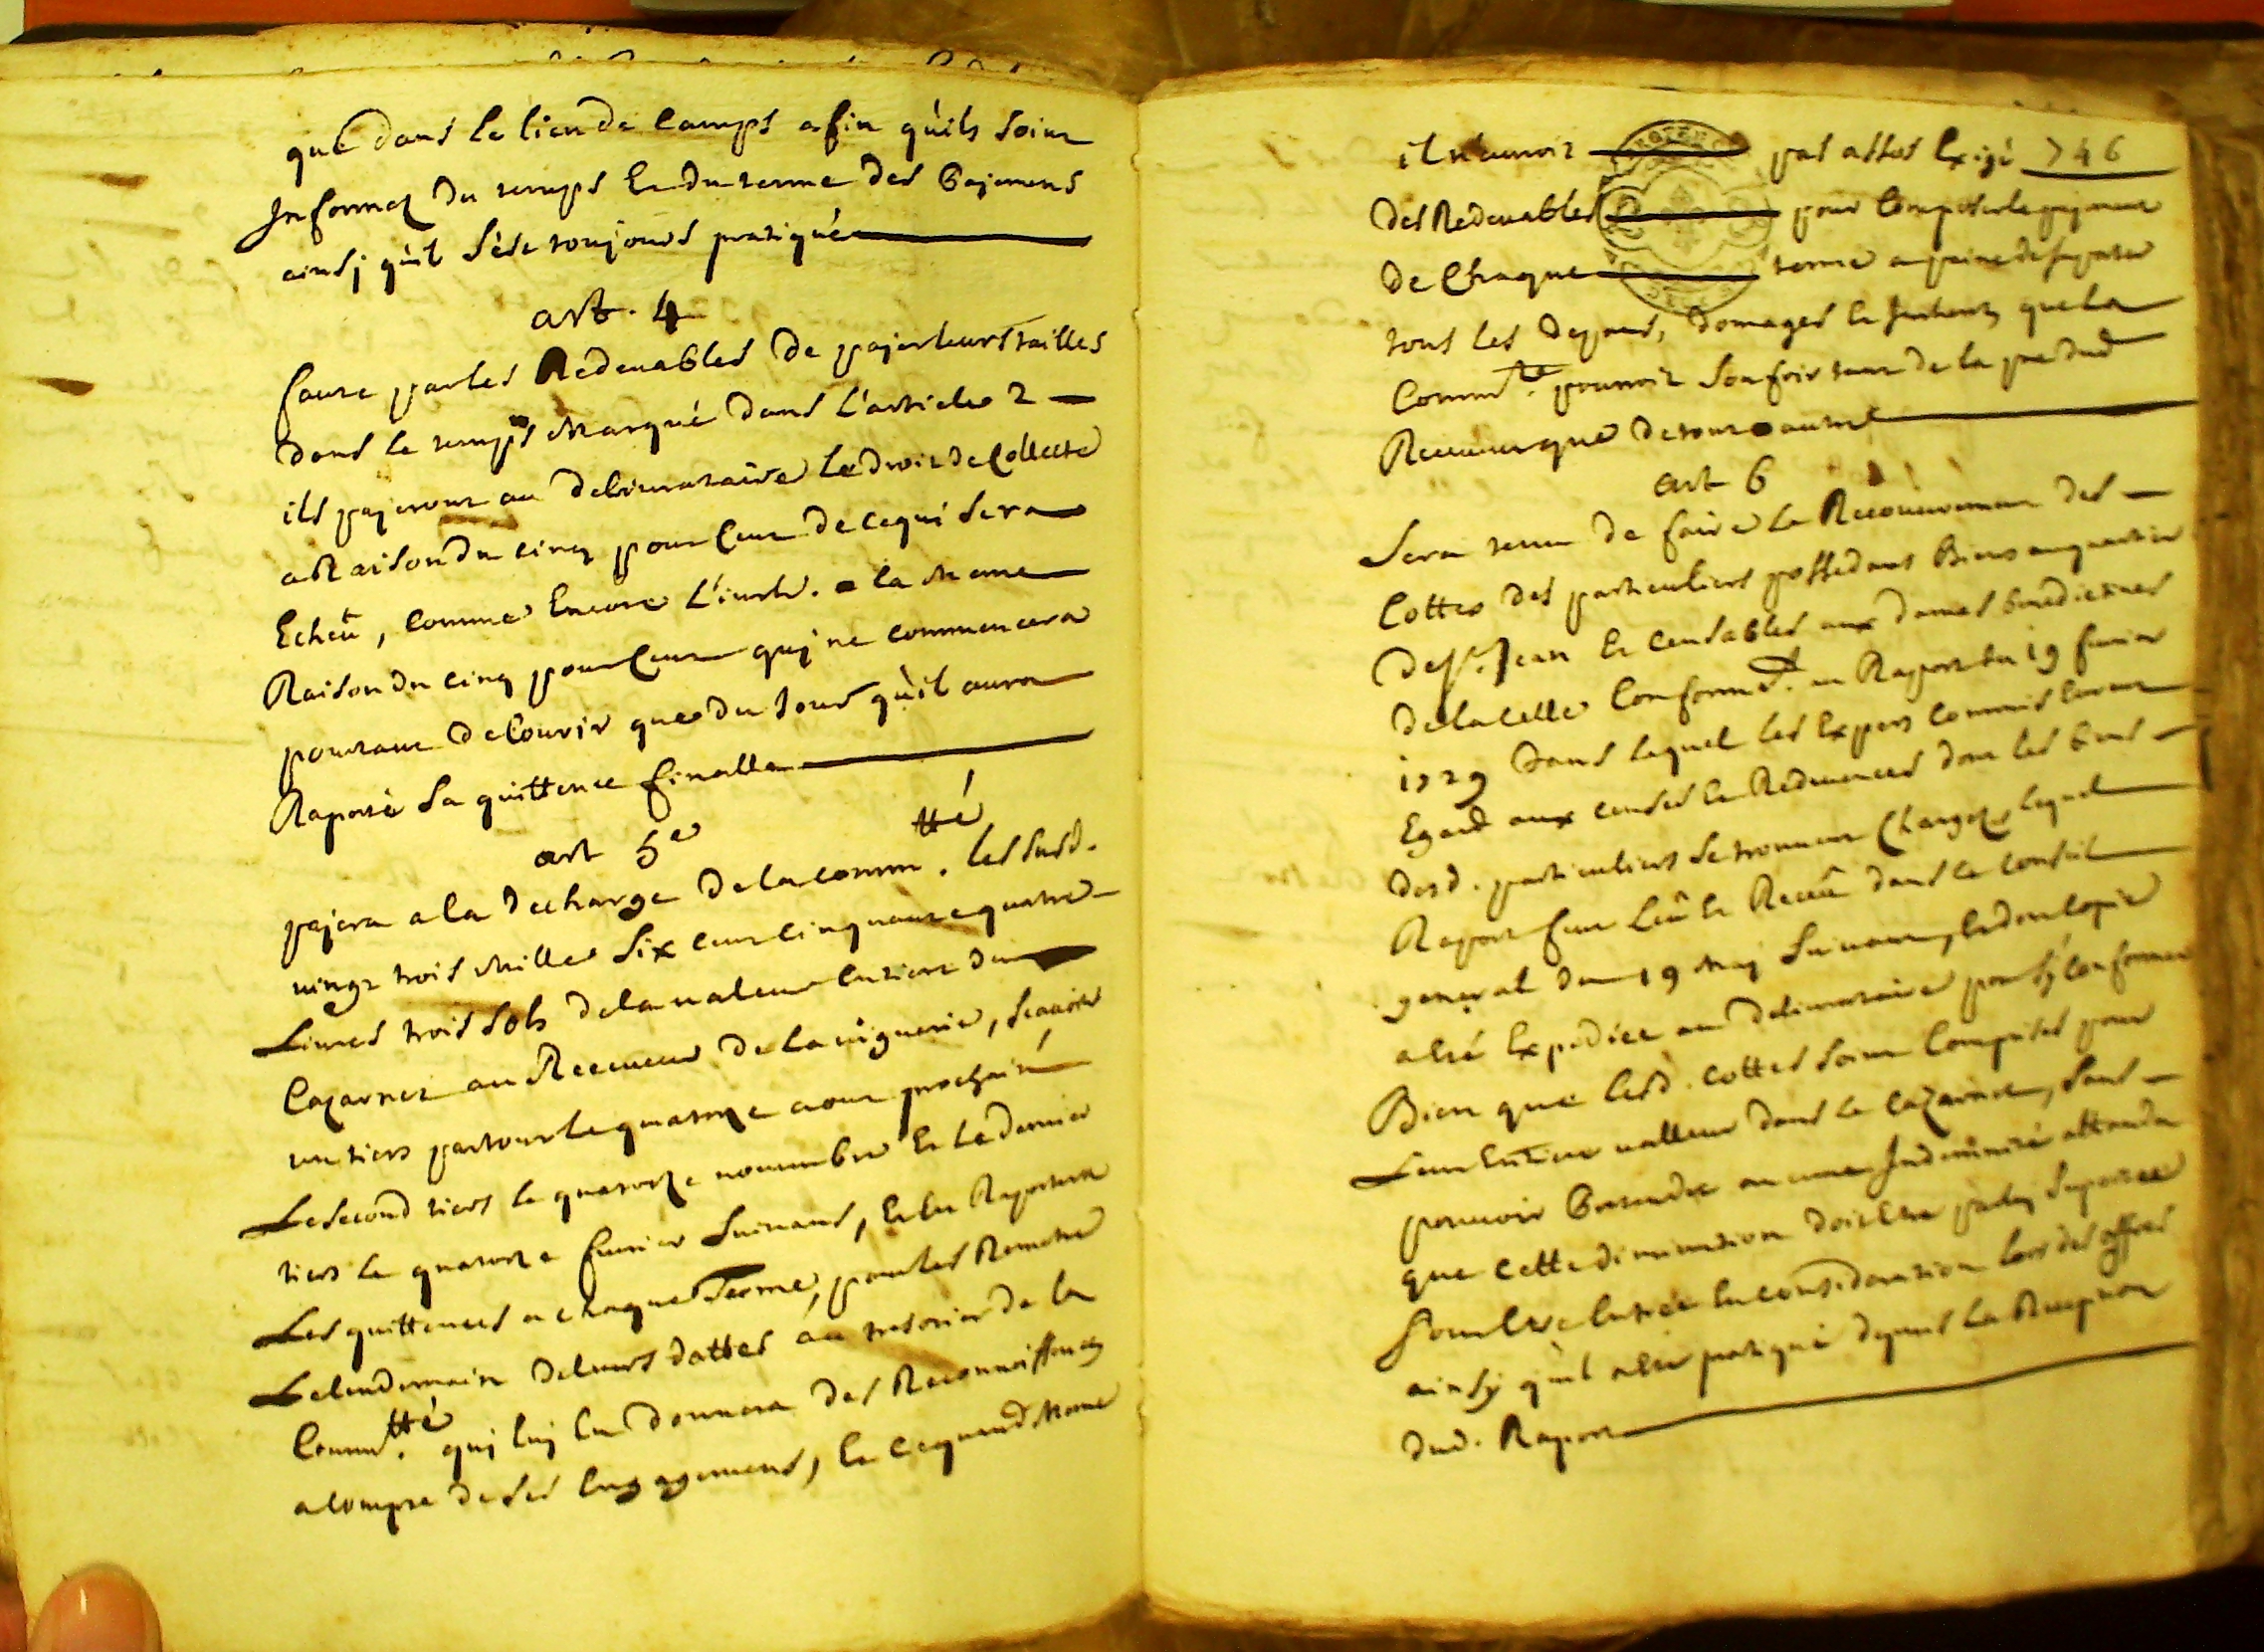 que dans le lieu de Camps afin qu'ils soint
Informez du temps et du terme des Pajemens
ainsj qu'il s'est toujours pratiqué
art. 4
faute par les Redevables de pajer leurs tailles
dans le temps Marqué dans l'article 2
ils pajeront au delivrataire le droit de Collecte
a Raison du cinq pour Cent de ce qui sera
Echeu, comme Encore l'jnth. a la Meme
Raison du cinq pour Cent quj ne commencera
pourtant de Courir que du Jour qu'il aura
Raporté sa quittence finalle
art 5e
pajera a la decharge de la comm.tté les susd.
vingt trois Mille six cent cinquante quatre
Livres trois sols de la valeur Entiere du
Cazarnet au Receveur de la viguerie, scavoir
un tiers par tout le quatorze aout prochain
Le second tiers le quatorze novembre Et le dernier
tiers le quatorze fevrier suivant, Et En Raportera
Les quittences a chaque Terme, pour les Remetre
Le lendemain de leurs dattes au tresorier de la
Comm.tté quj luj En donnera des Reconnoissences
a Compte de ses Engagemens, Et ce quand Meme
il n'auroit pas asses Exigé 746
des Redevables pour Composer le pajement
de Chaque terme a peine de suporter
tous les depans, domages Et Intherets que la
Comm.té pourroit soufrir tant de la part dud
Receveur que de tout autre
art 6
Sera tenu de faire le Recouvrement des
Cottes des particuliers possedant Biens au quartier
de St. Jean Et censables aux dames benedictines
de la Celle Conformt. au Raport du 19 fevrier
1729 dans lequel les Expers Commis Eurent
Egard aux censes Et Redevences dont les biens
desd. particuliers se trouvent Chargez, lequel
Raport fut Leû Et Receû dans le Conseil
general du 19 Maj suivant, Et dont Copie
a Eté Expediée au delivrataire pour s'y Conformer
Bien que lesd. cottes soint Comprises pour
Leur Entiere valleur dans le Cazarnet, sans
pouvoir Pretendre aucune Indemnité attendu
que cette diminution doit Etre par luj suportée
pour Etre Entrée En consideration lors des offres
ainsy qu'il a Eté pratiqué depuis la Reception
dud. Raport